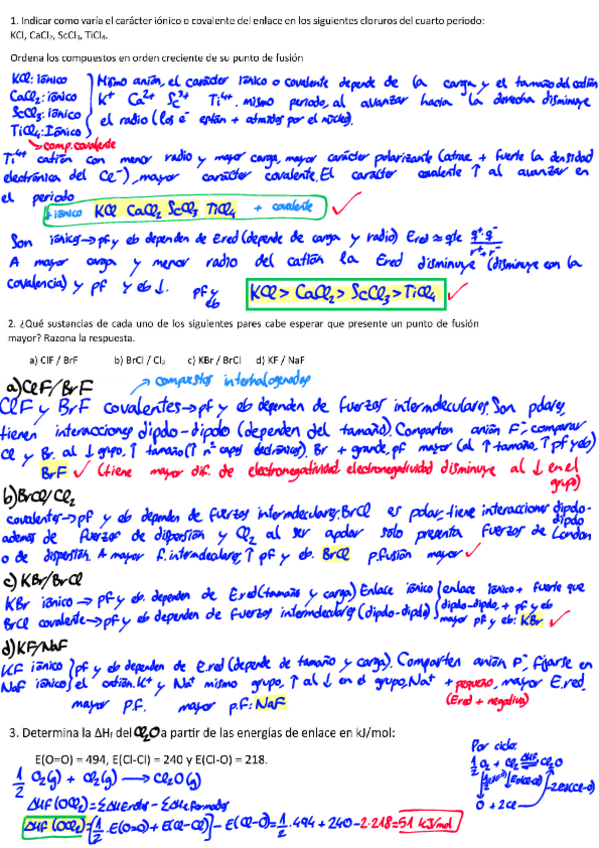 1. Indicar como varía el carácter iónico o covalente del enlace en los siguientes cloruros del cuarto periodo:
KCl, CaCl₂, ScCl₃, TiCl₄.
Ordena los compuestos en orden creciente de su punto de fusión
KCl: iónico
CaCl₂: iónico
ScCl₃: iónico
TiCl₄: Iónico
Mismo anión, el carácter iónico o covalente depende de la carga y el tamaño del catión
K⁺ Ca²⁺ Sc³⁺ Ti⁴⁺. mismo periodo, al avanzar hacia la derecha disminuye
el radio (los e⁻ están + atraídos por el núcleo).
comp. covalente
Ti⁴⁺ catión con menor radio y mayor carga, mayor carácter polarizante (atrae + fuerte la densidad
electrónica del Cl⁻), mayor carácter covalente. El carácter covalente ↑ al avanzar en
el periodo
+ iónico KCl CaCl₂ ScCl₃ TiCl₄ + covalente
Son iónicos → pf y eb dependen de Ered (depende de carga y radio) Ered
A mayor carga y menor radio del catión la Ered disminuye (disminuye con la
covalencia) y pf y eb ↓. pf y eb KCl > CaCl₂ > ScCl₃ > TiCl₄
2. ¿Qué sustancias de cada uno de los siguientes pares cabe esperar que presente un punto de fusión
mayor? Razona la respuesta.
a) ClF / BrF b) BrCl / Cl₂ c) KBr / BrCl d) KF / NaF
a) ClF/BrF → compuestos interhalogenados
ClF y BrF covalentes → pf y eb dependen de fuerzas intermoleculares. Son polares,
tienen interacciones dipolo-dipolo (dependen del tamaño). Comparten anión F⁻, comparar
Cl y Br. al ↓ grupo, ↑ tamaño (↑ nº capas electrónicas). Br + grande, pf mayor (al ↑ tamaño, ↑ pf y eb)
BrF (tiene mayor dif. de electronegatividad electronegatividad disminuye al ↓ en el
grupo)
b) BrCl/Cl₂
covalentes → pf y eb dependen de fuerzas intermoleculares. BrCl es polar, tiene interacciones dipolo-dipolo
además de fuerzas de dispersión y Cl₂ al ser apolar solo presenta fuerzas de London
o de dispersión. A mayor f. intermolecular, ↑ pf y eb. BrCl p. fusión mayor
c) KBr/BrCl
KBr iónico → pf y eb. dependen de Ered (tamaño y carga) Enlace iónico
BrCl covalente → pf y eb dependen de fuerzas intermoleculares (dipolo-dipolo)
enlace iónico + fuerte que
dipolo-dipolo, + pf y eb
mayor pf y eb: KBr
d) KF/NaF
KF iónico
NaF iónico
pf y eb dependen de E.red (depende de tamaño y carga). Comparten anión F⁻, fijarse en
el catión. K⁺ y Na⁺ mismo grupo, ↑ al ↓ en el grupo, Na⁺ + pequeño, mayor E.red.
mayor P.f. mayor p.f: NaF (Ered + negativa)
3. Determina la ΔHf del Cl₂O a partir de las energías de enlace en kJ/mol:
E(O=O) = 494, E(Cl-Cl) = 240 y E(Cl-O) = 218.
½ O₂(g) + Cl₂(g) → Cl₂O(g)
ΔHf (OCl₂) = ΣΔHErotos − ΣΔHEformados
ΔHf (OCl₂) = [½ . E(O=O) + E(Cl-Cl)] − E(Cl-O) = ½ . 494 + 240 − 2.218 = 51 kJ/mol
Por ciclo:
½ O₂ + Cl₂ ΔHf Cl₂O
-2E(Cl-O)
O + 2Cl